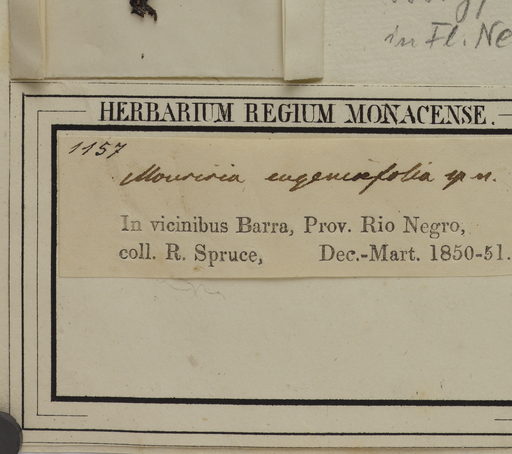 in Fl. Ne
HERBARIUM REGIUM MONACENSE.
1157
Mouriria eugeniæfolia sp n.
In vicinibus Barra, Prov. Rio Negro,
coll. R. Spruce, Dec.-Mart. 1850-51.